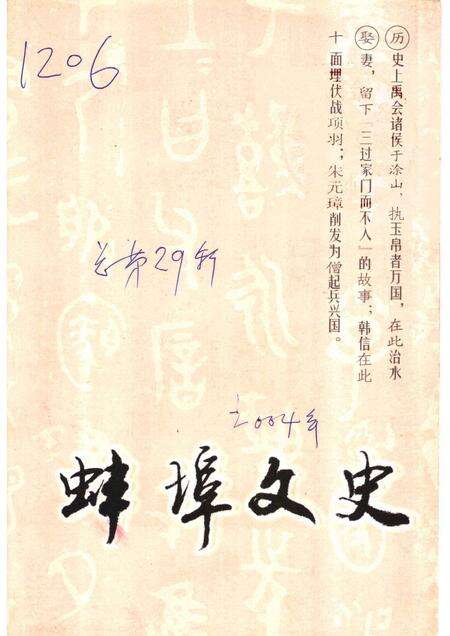 1206
历史上禹会诸侯于涂山，执玉帛者万国，在此治水
娶妻，留下“三过家门而不入”的故事；韩信在此
十面埋伏战项羽；朱元璋削发为僧起兵兴国。
总第29辑
2004年
蚌埠文史